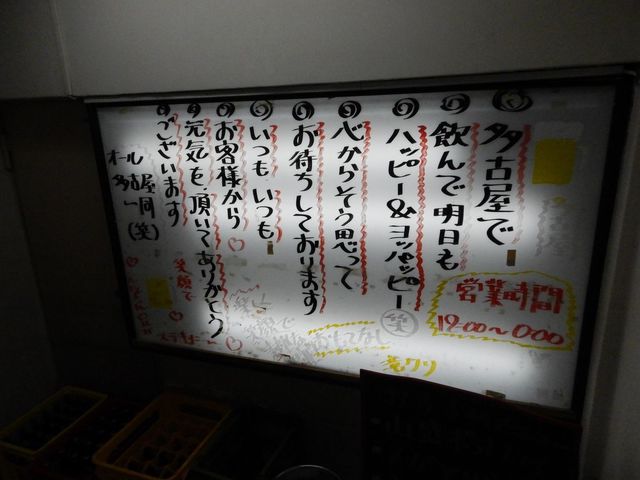 多古屋で
飲んで明日も
ハッピー&ヨッパッピー
(笑)
心からそう思って
お待ちしております
いつも いつも
お客様から
元気を、頂いてありがとう
ございます
オール
多古屋
一同
(笑)
営業時間
笑顔で
おもてなし